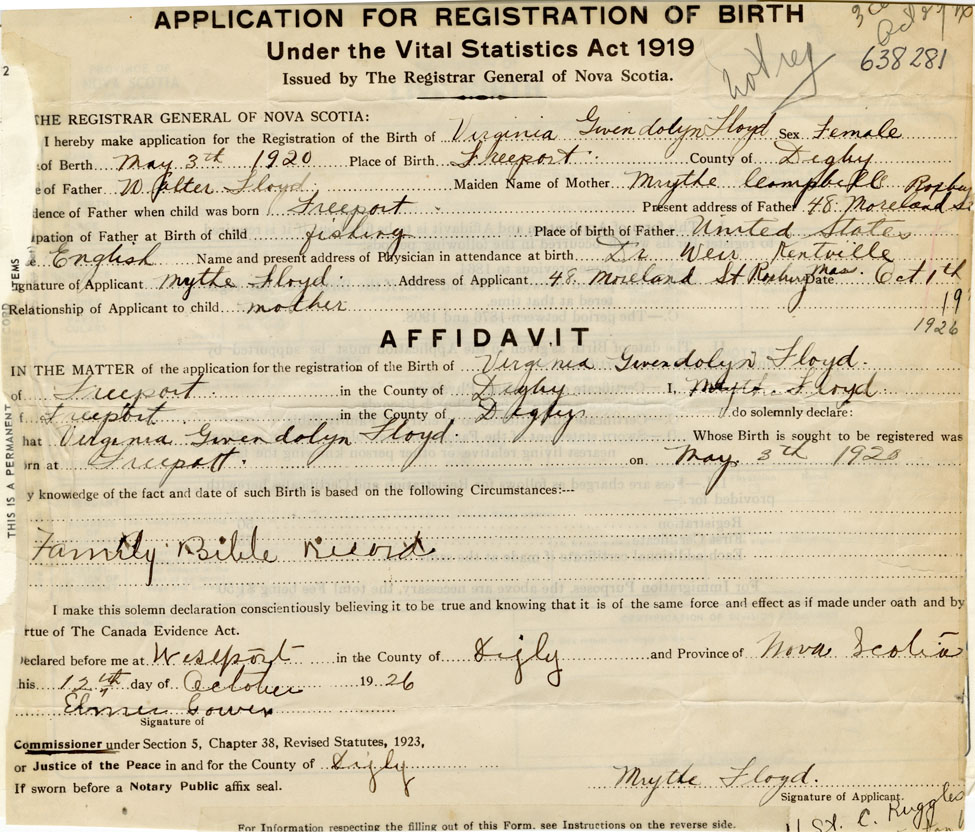 APPLICATION FOR REGISTRATION OF BIRTH
Under the Vital Statistics Act 1919
Issued by The Registrar General of Nova Scotia.
not reg
638281
2
THE REGISTRAR GENERAL OF NOVA SCOTIA:
I hereby make application for the Registration of the Birth of Virginia Gwendolyn Floyd Sex Female
of Berth May 3th 1920 Place of Birth Freeport County of Digby
e of Father Walter Floyd Maiden Name of Mother Maythe Campbell
dence of Father when child was born Freeport Present address of Father 48 Moreland St Roxbury
upation of Father at Birth of child fishing Place of birth of Father United States
e English Name and present address of Physician in attendance at birth Dr Weir Kentville
ignature of Applicant Mythe Floyd Address of Applicant 48 Moreland St Roxbury Mas. Date Oct 1th 19
1926
Relationship of Applicant to child mother
AFFIDAVIT
IN THE MATTER of the application for the registration of the Birth of Virginia Gwendolyn Floyd.
of Freeport in the County of Digby I, Floyd
f Freeport in the County of Digby do solemnly declare:
hat Virginia Gwendolyn Floyd. Whose Birth is sought to be registered was
rn at Freeport. on May 3th 1920
y knowledge of the fact and date of such Birth is based on the following Circumstances:--
Family Bible Record
I make this solemn declaration conscientiously believing it to be true and knowing that it is of the same force and effect as if made under oath and by
rtue of The Canada Evidence Act.
eclared before me at Westport in the County of Digby and Province of Nova Scotia
his 12th day of October 1926
Elmer Gower
Signature of
Commissioner under Section 5, Chapter 38, Revised Statutes, 1923,
or Justice of the Peace in and for the County of Digby
If sworn before a Notary Public affix seal.
Mrythe Floyd.
Signature of Applicant.
St. C. Ruggles
For Information respecting the filling out of this Form, see Instructions on the reverse side.
THIS IS A PERMANENT